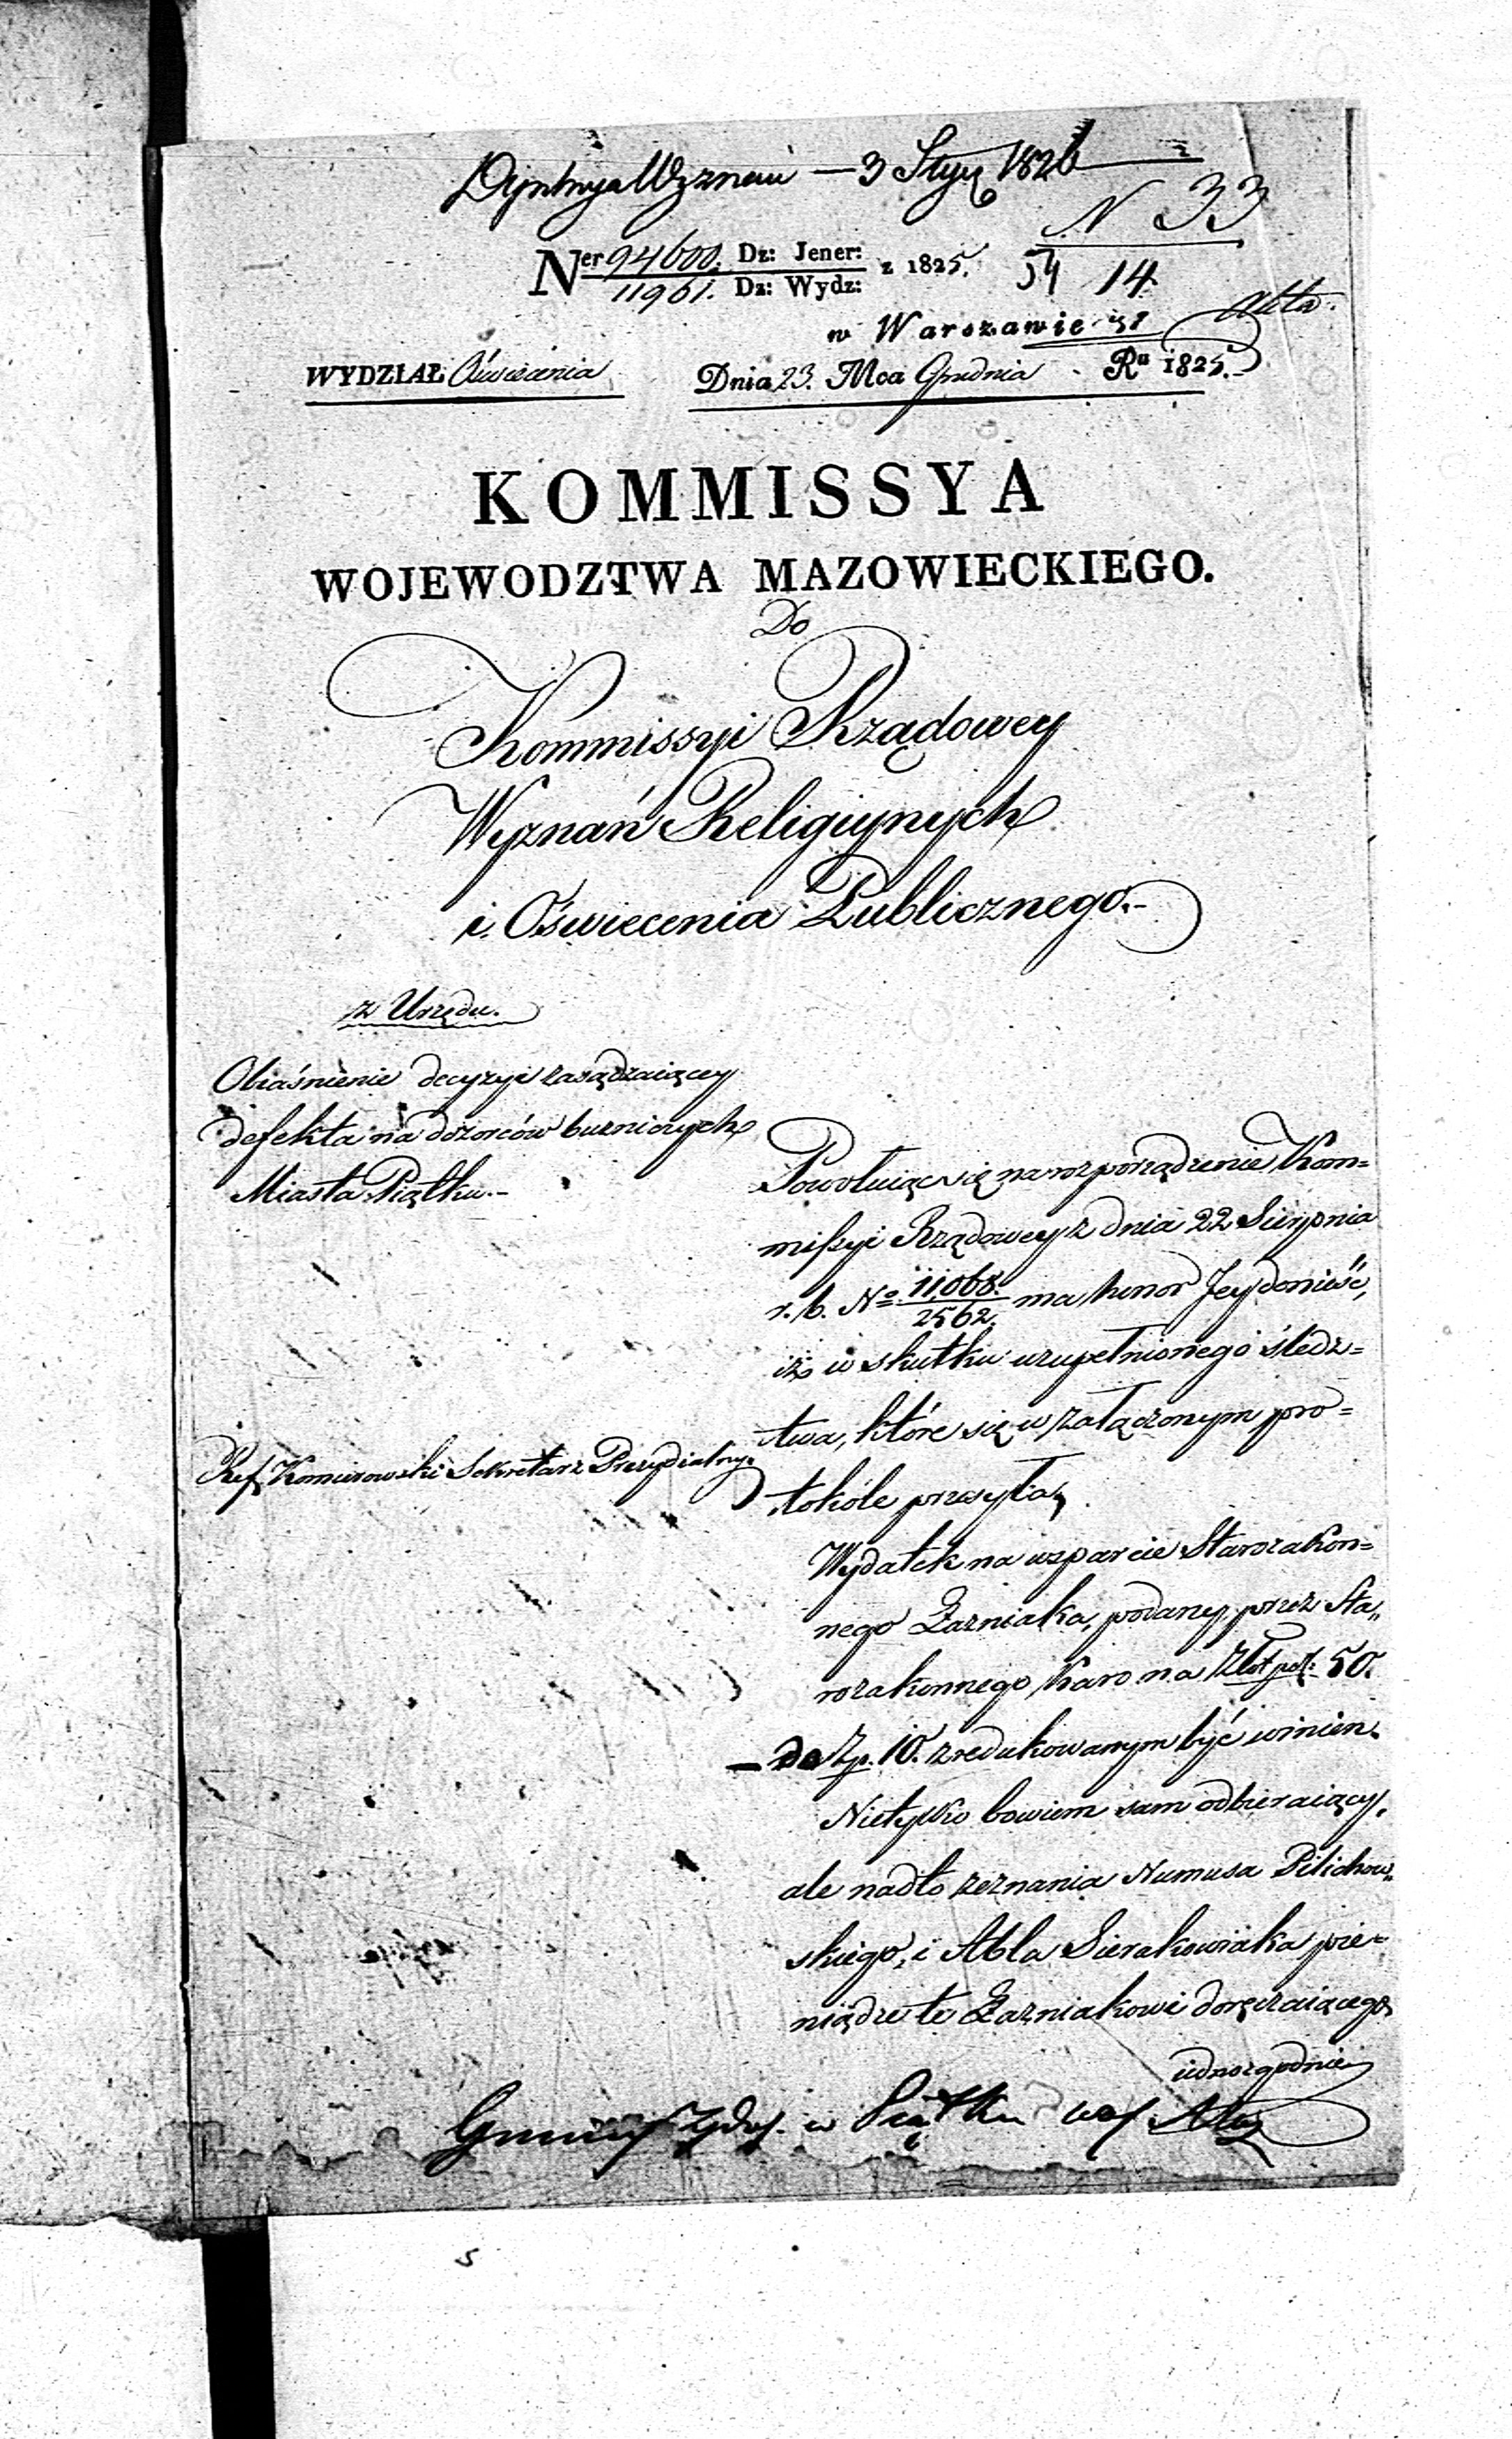 Wyznań — 3 Stycz 1826
N 33
Ner 94600. Dz: Jener: z 1825.
11961. Dz: Wydz:
54 14
w Warszawie
Akta.
WYDZIAŁ Oświecenia Dnia 23. Mca Grudnia Ru 1825.
KOMMISSYA
WOJEWODZTWA MAZOWIECKIEGO.
Do
Kommissyi Rządowey
Wyznań Religiynych
i Oświecenia Publicznego.-
z Urzędu.
Obiaśnienie decyzyi zasądzaiącey
defekta na dozorców bużniczych
Miasta Piątku.-
Powołuiąc się na rozporządzenie Kom=
missyi Rządowey z dnia 22 Sierpnia
r. b. No 11068./2562. ma honor Jey donieść,
iż w skutku uzupełnionego śledz=
twa, które się w załączonym pro=
Ref. Komierowski Sekretarz Prezydialny.
tokóle przesyła,
Wydatek na wsparcie Starozakon=
nego Zazniaka, podany przez Sta„
rozakonnego Karo na Złot pol: 50.
— do Zp. 10. zredukowanym być winien.
Nietylko bowiem sam odbieraiący,
ale nadto zeznania Numusa Pilichow„
skiego, i Abla Sierakowiaka pie=
niądze te Zazniakowi doręczaiącego,
iednozgodnie
Gminy Żyd. w Piątku